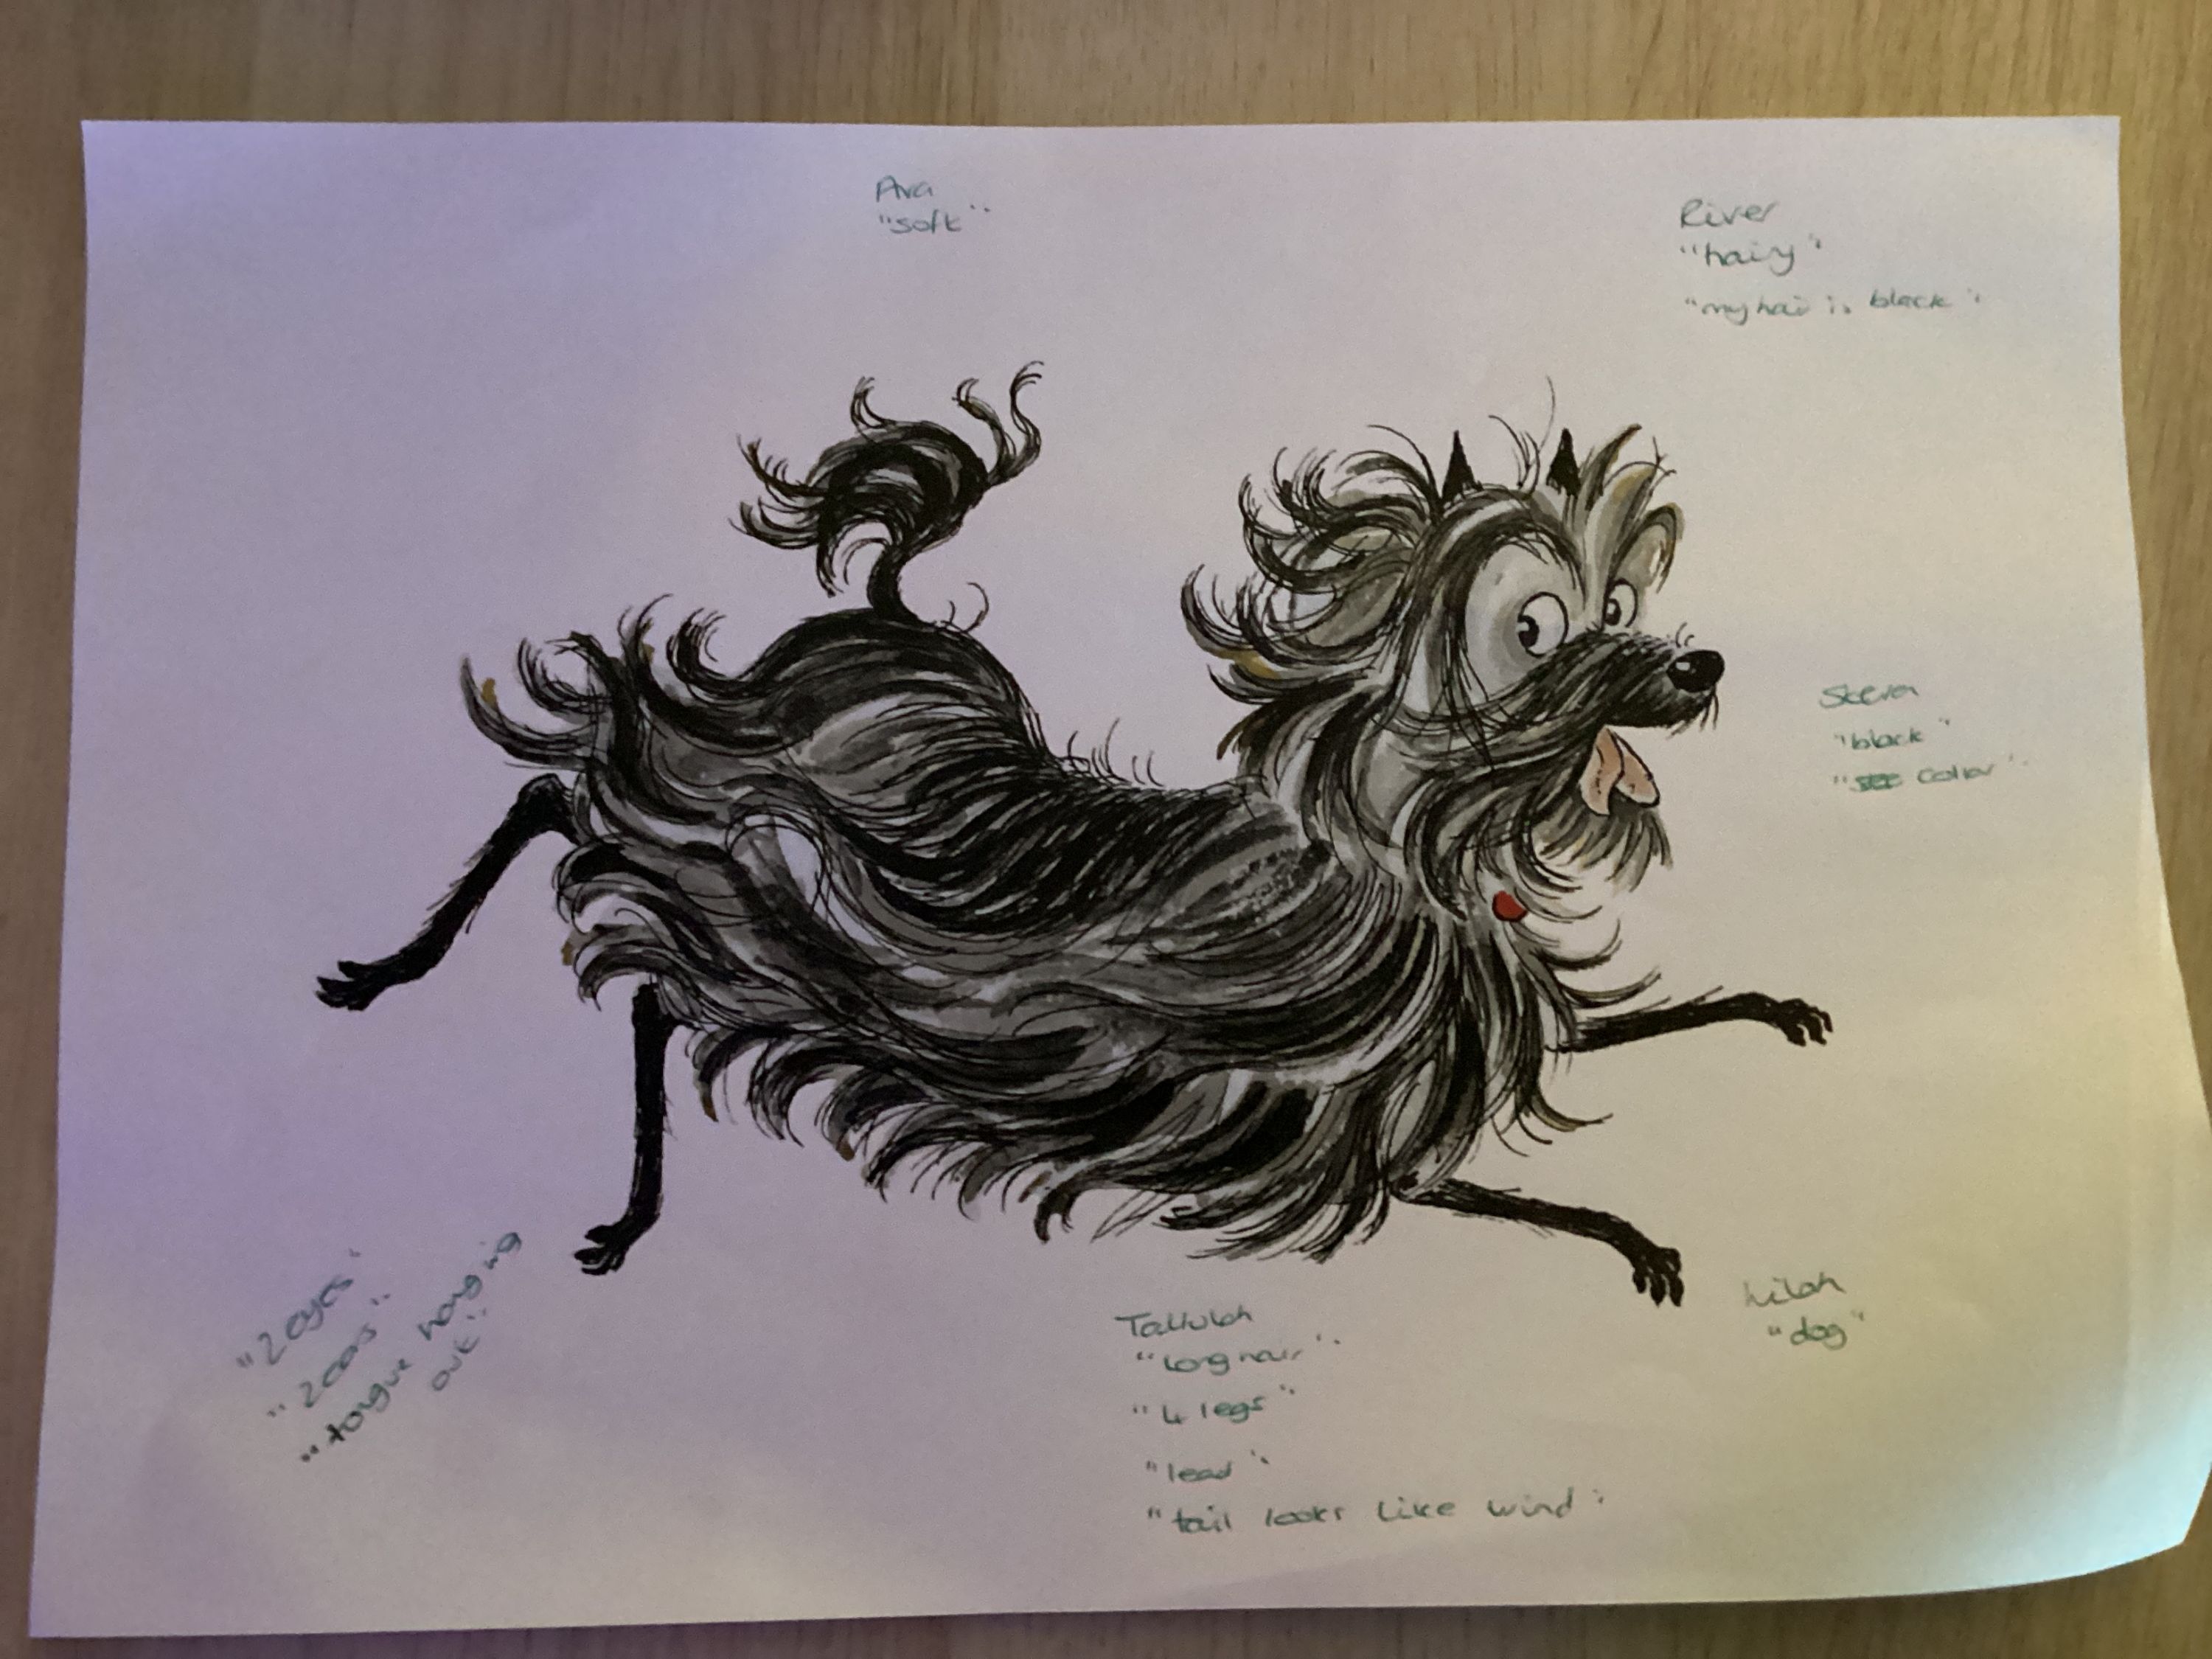 Ava
"soft"
River
"hairy"
"my hair is black"
"black"
"collar"
Lilah
"dog"
Tallulah
"long hair"
"4 legs"
"lead"
"tail looks like wind"
"2 eyes"
"2 ears"
"tongue hanging
out"